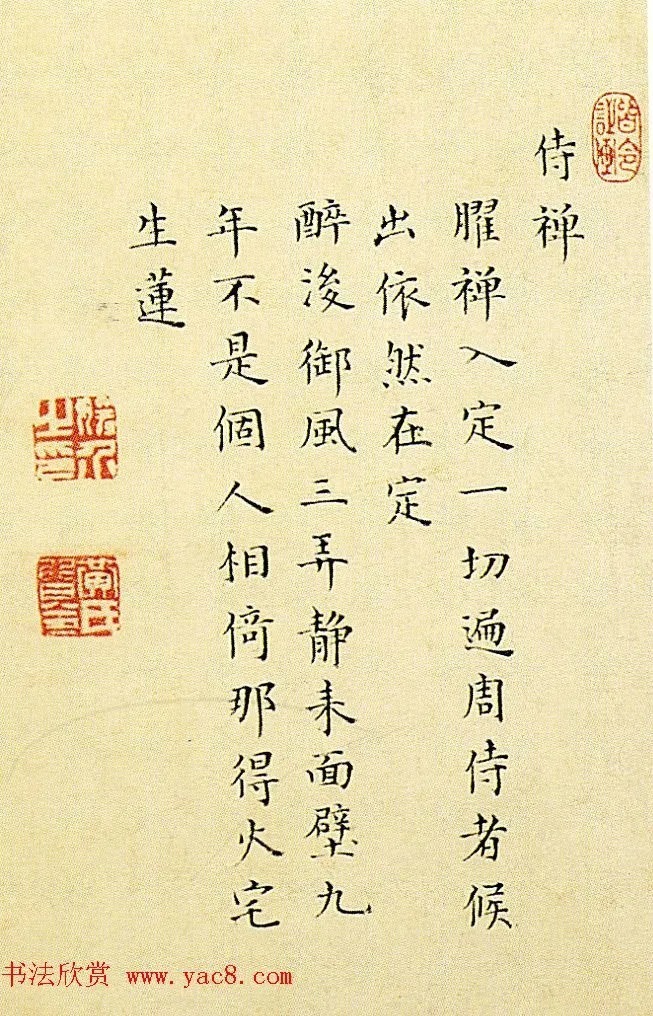 侍禅
臞禅入定一切遍周侍者候
出依然在定
醉后御風三弄静来面壁九
年不是個人相倚那得火宅
生蓮
书法欣赏 www.yac8.com